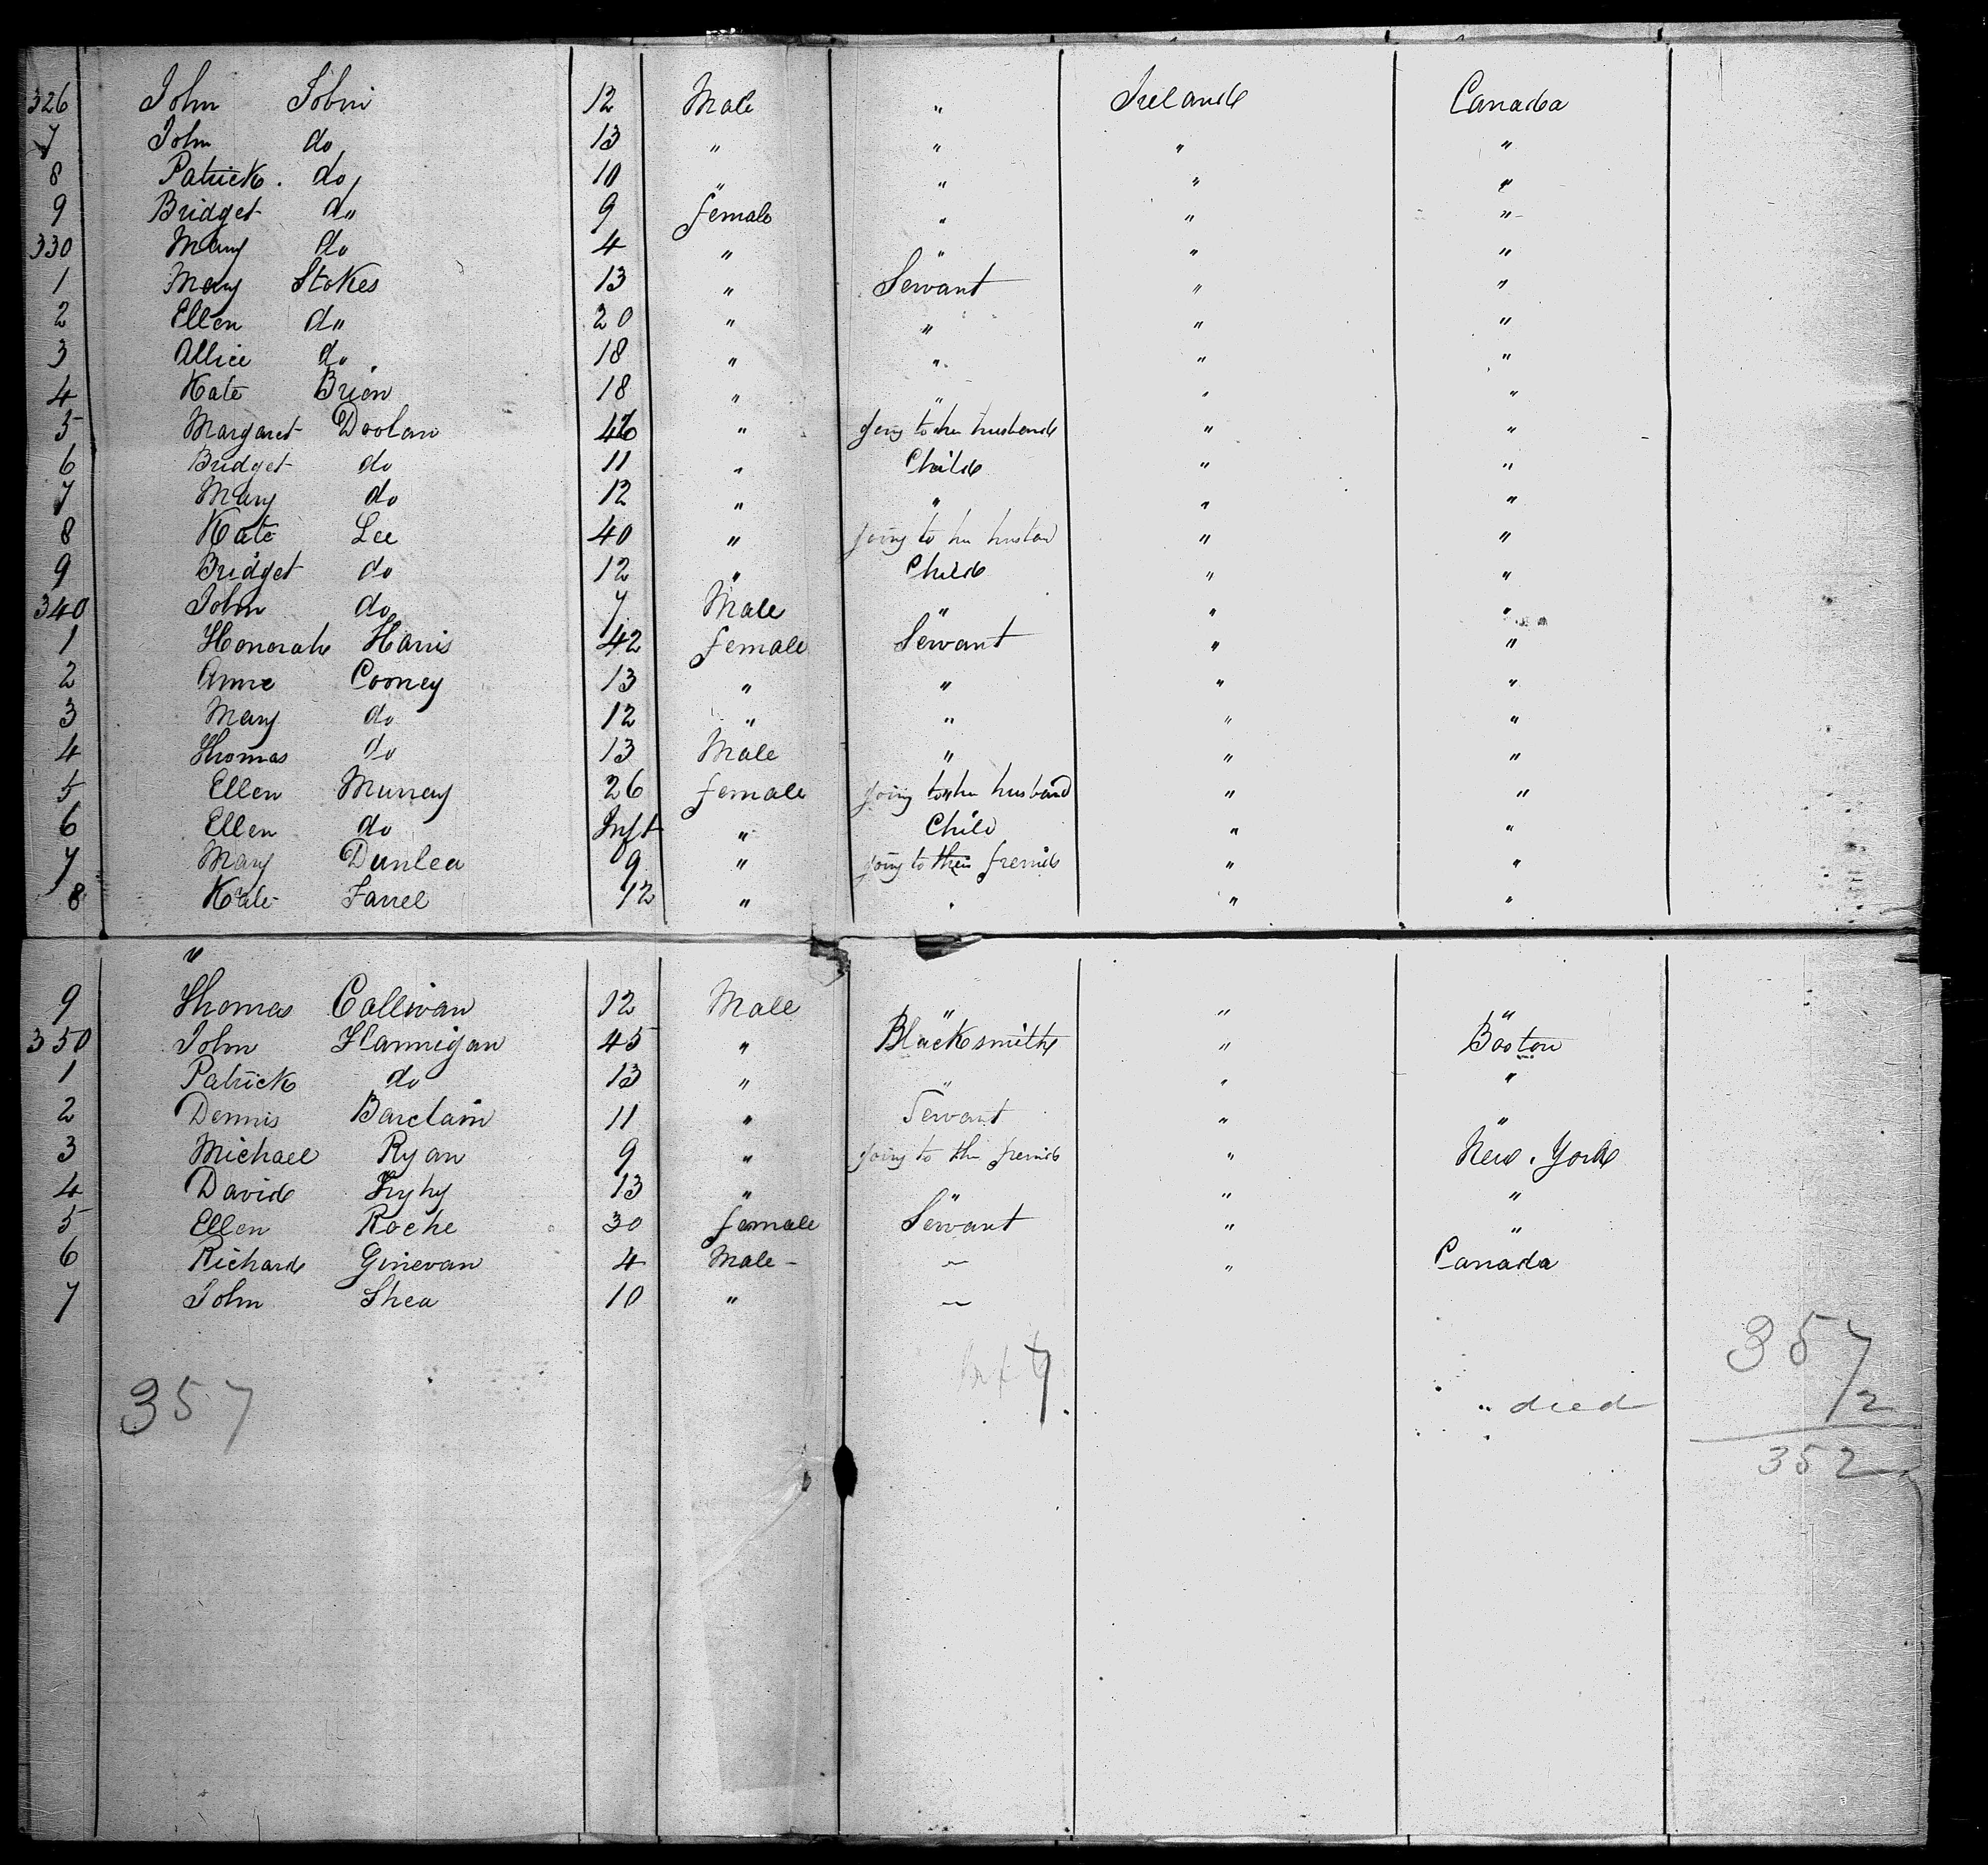 326 John Tobin 12 Male " Ireland Canada
7 John do 13 " " " "
8 Patrick do 10 " " " "
9 Bridget do 9 female " " "
330 Mary do 4 " " " "
1 Mary Stokes 13 " Servant " "
2 Ellen do 20 " " " "
3 Allice do 18 " " " "
4 Kate Brien 18 " " " "
5 Margaret Doolan " going to her husband " "
6 Bridget do 11 " Child " "
7 Mary do 12 " " " "
8 Kate Lee 40 " going to her husban " "
9 Bridget do 12 " Child " "
340 John do 7 Male " " "
1 Honorah Harris 42 female Servant " "
2 Anne Comey 13 " " " "
3 Mary do 12 " " " "
4 Thomas do 13 Male " " "
5 Ellen Murray 26 female going to her husband " "
6 Ellen do Inft " Child " "
7 Mary Dunlea 9 " going to their friend " "
8 Kate Farrel 12 " " " "
"
9 Thomas Callivan 12 Male " " "
350 John Flannigan 45 " Blacksmith " Boston
1 Patrick do 13 " " " "
2 Dennis 11 " Servant " "
3 Michael Ryan 9 " going to the friend " New York
4 David 13 " " " "
5 Ellen Roche 30 female Servant " "
6 Richard Ginevan 4 Male - — " Canada
7 John Shea 10 " —
357
7
" died
357
352